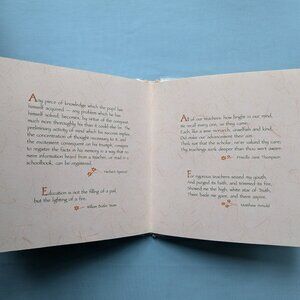 Any piece of knowledge which the pupil has
himself acquired — any problem which he has
himself solved, becomes, by virtue of the conquest,
much more thoroughly his than it could else be. The
preliminary activity of mind which his success implies,
the concentration of thought necessary to it, and
the excitement consequent on his triumph, conspire
to register the facts in his memory in a way that no
mere information heard from a teacher, or read in a
schoolbook, can be registered.
Herbert Spencer
Education is not the filling of a pail,
but the lighting of a fire.
William Butler Yeats
All of our teachers, how bright in our mind,
We recall every one, as they came;
Each like a wise monarch, unselfish and kind,
Did make our advancement their aim.
Think not that the scholar, ne'er valued thy care;
Thy teachings sunk deeper than thou wert aware.
Priscilla Jane Thompson
For rigorous teachers seized my youth,
And purged its faith, and trimmed its fire,
Showed me the high, white star of Truth,
There bade me gaze, and there aspire.
Matthew Arnold